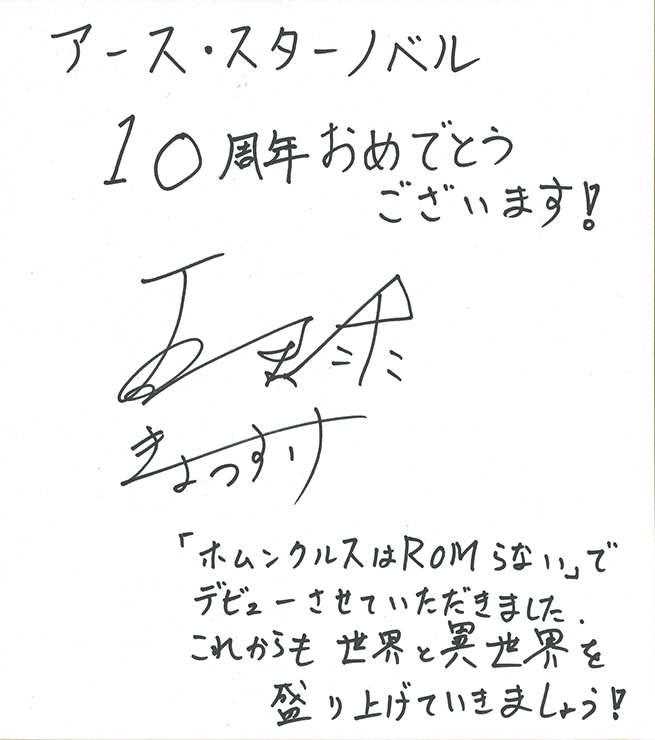 アース・スターノベル
10周年おめでとう
ございます！
きょっすり
「ホムンクルスはROMらない」で
デビューさせていただきました．
これからも世界と異世界を
盛り上げていきましょう！